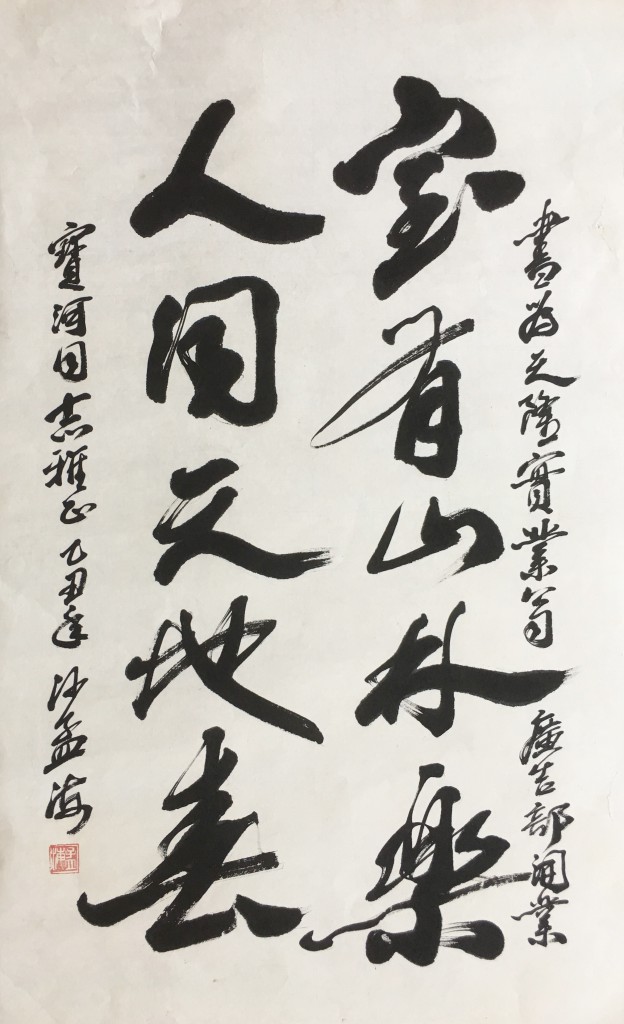 書為隆實業公司 廣告部開業
室有山林樂
人同天地春
寶河同志雅正 乙丑年 沙孟海